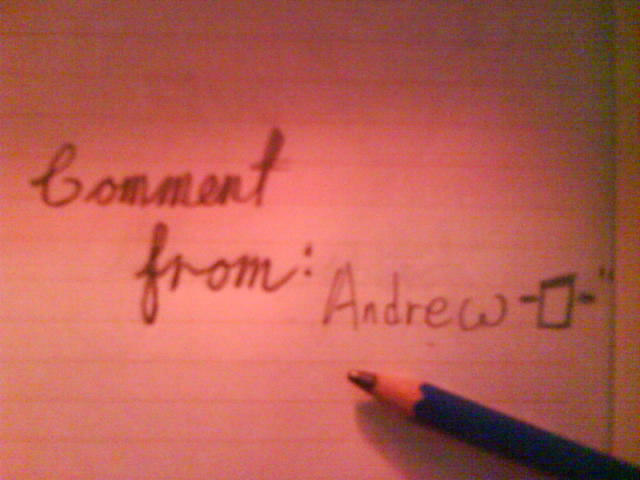 Comment
from: Andrew-□-"